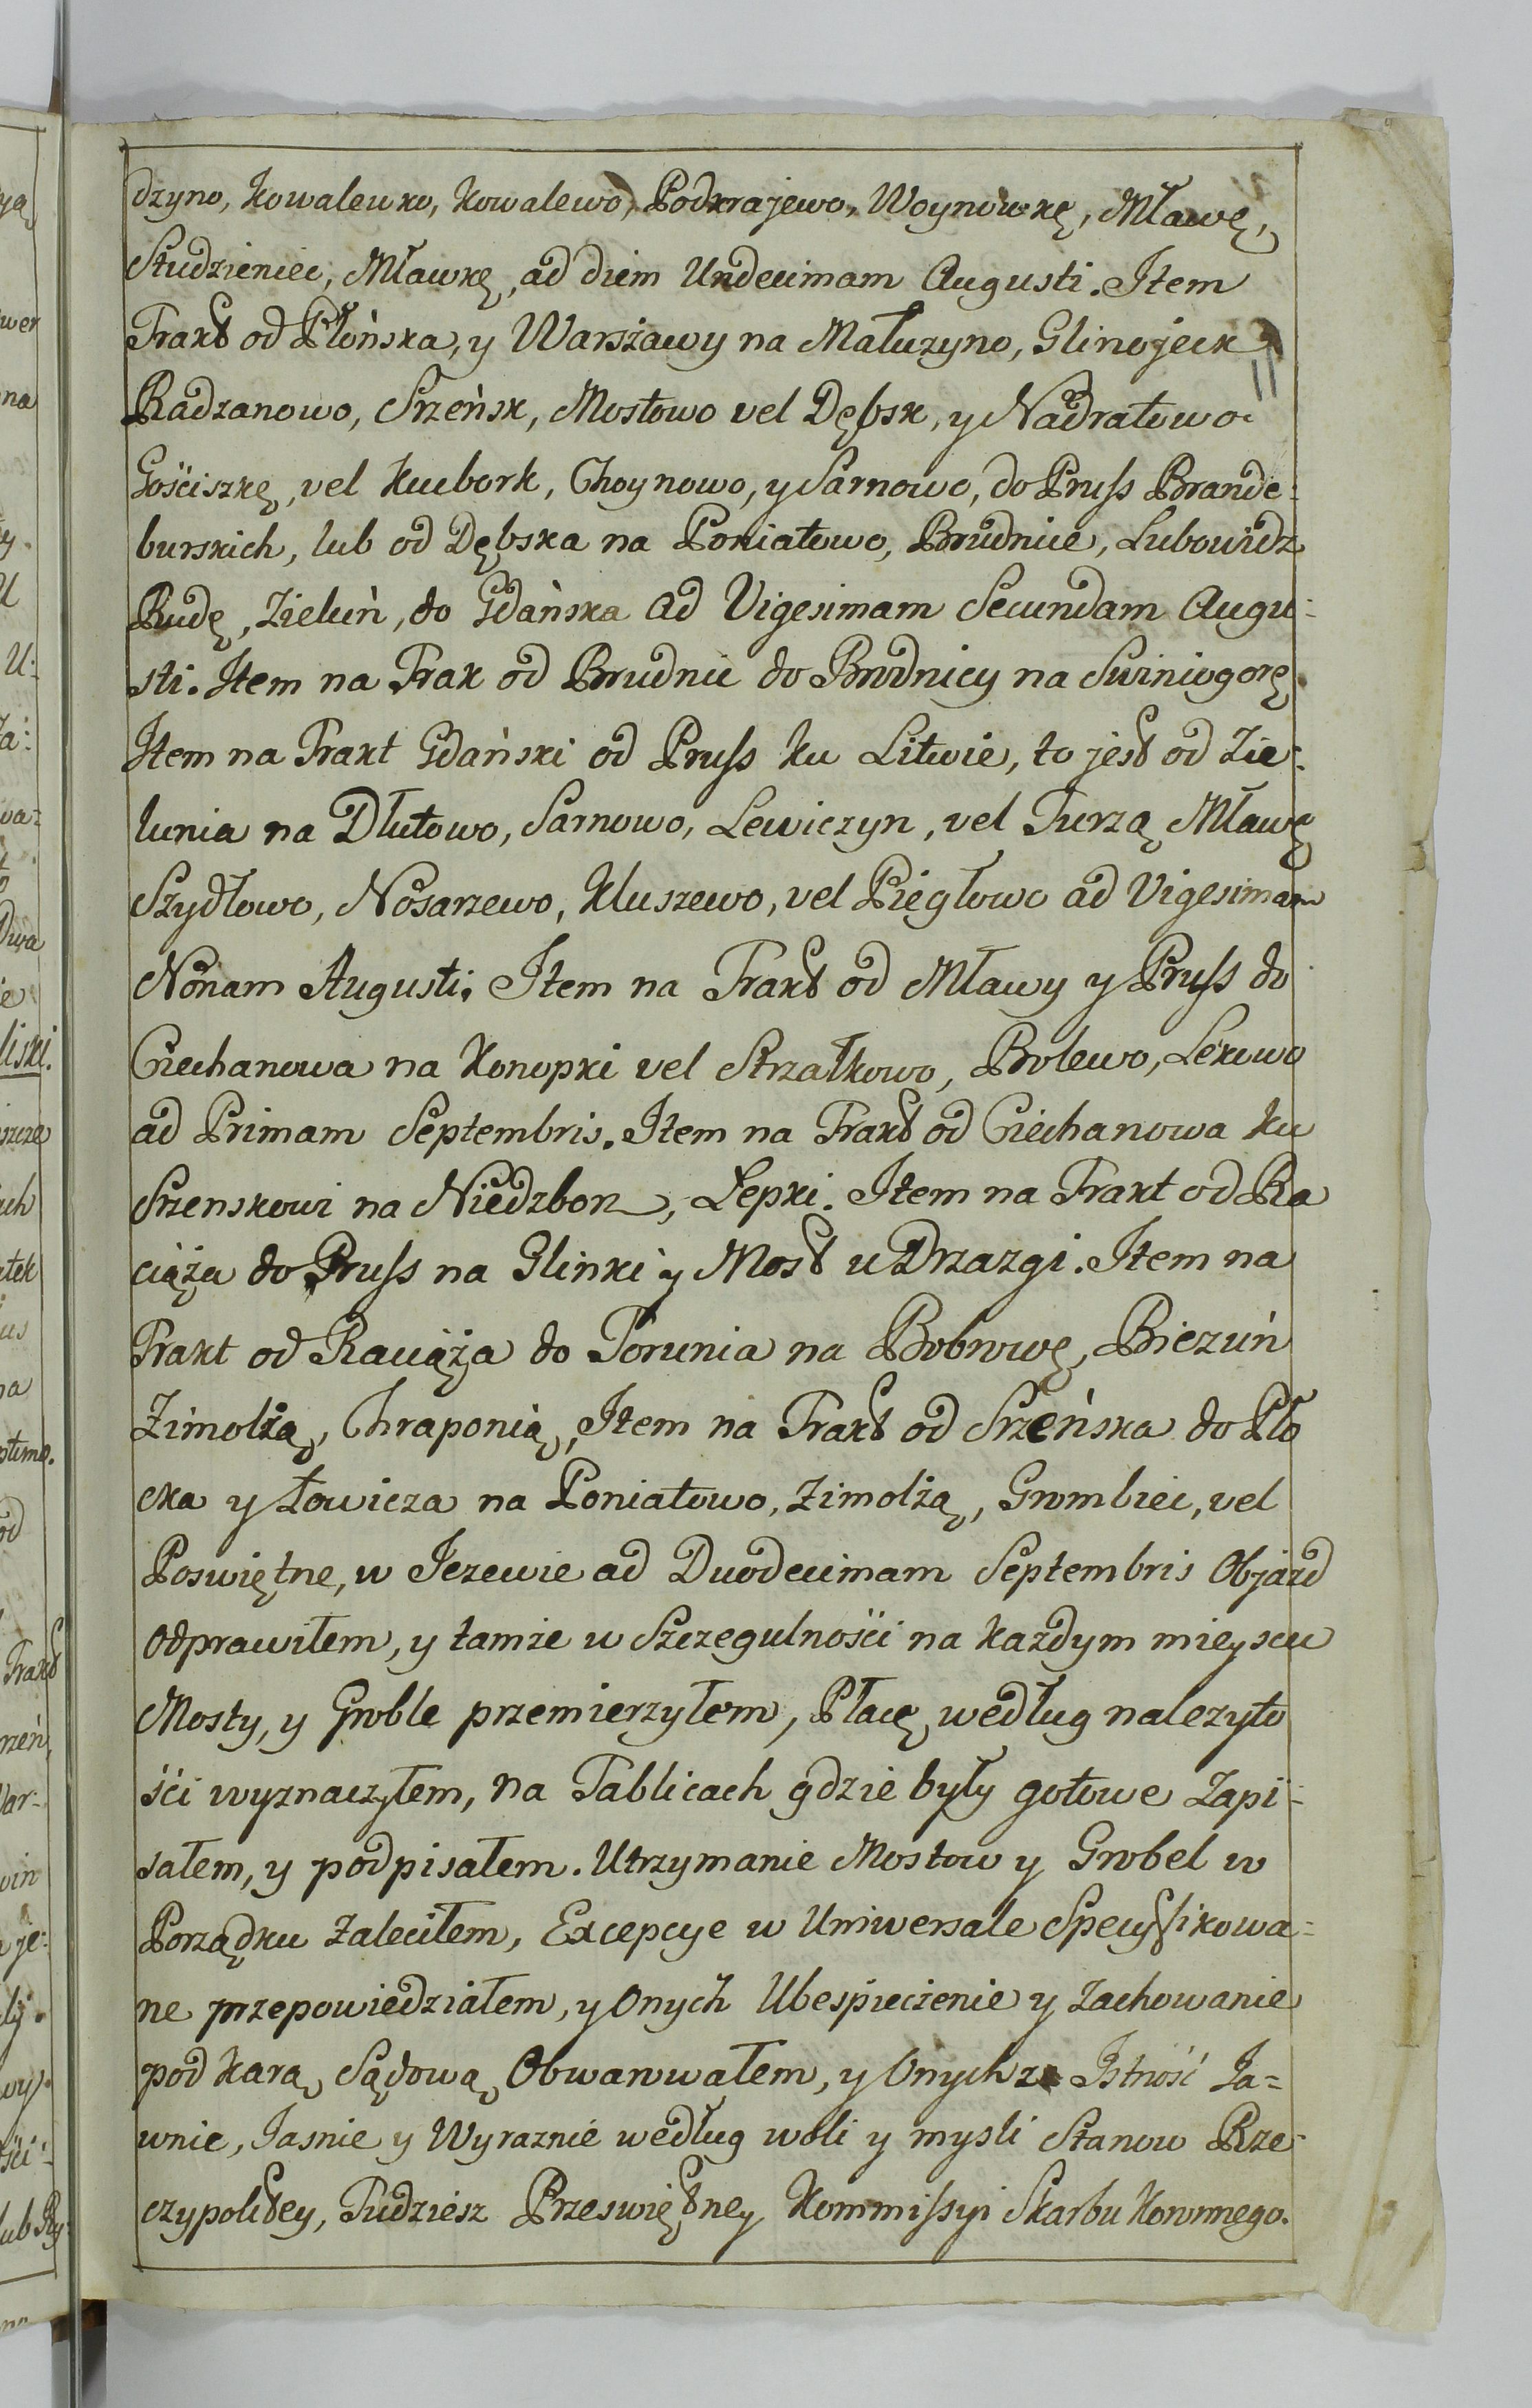 dzyno, Kowalewko, Kowalewo, Podkrajewo, Woynowkę, Mławę,
Studzieniec, Mławkę, ad diem Undecimam Augusti. Item
Trakt od Płońska, y Warszawy na Małuzyno, Glinojeck
Radzanowo, Srzeńsk, Mostowo vel Dębsk, y Nadratowo
Gościszkę, vel Kucbork, Choynowo, y Sarnowo, do Pruss Brande:
burskich, lub od Dębska na Poniatowo, Brudnice, Lubowidz
Rudę, Zieluń, do Gdańska ad Vigesimam Secundam Augu:
sti. Item na Trak od Brudnic do Brodnicy na Swiniogorę.
Item na Trakt Gdański od Pruss ku Litwie, to jest od Zie:
lunia na Dłutowo, Sarnowo, Lewiczyn, vel Turzą Mławę
Szydłowo, Nosarzewo, Kluszewo, vel Pięgłowo ad Vigesimam
Nonam Augusti. Item na Trakt od Mławy y Pruss do
Ciechanowa na Konopki vel Strzałkowo, Bolewo, Lekowo
ad Primam Septembris. Item na Trakt od Ciechanowa ku
Srzenskowi na Niedzborz, Lepki. Item na Trakt od Ra
ciąża do Pruss na Glinki y Most u Drzazgi. Item na
Trakt od Raciąża do Torunia na Bobrowę, Biezuń
Zimolżą, Chraponią, Item na Trakt od Srzeńska do Pło
cka y Łowicza na Poniatowo, Zimolżą, Grombiec, vel
Poswiętne, w Jezewie ad Duodecimam Septembris Objazd
odprawiłem, y tamże w Szczegulności na każdym mieyscu
Mosty, y Groble przemierzyłem, Płacę według nalezyto
ści wyznaczyłem, na Tablicach gdzie były gotowe Zapi:
sałem, y podpisałem. Utrzymanie Mostow y Grobel w
Porządku zaleciłem, Excepcye w Uniwersale Specyfikowa:
ne przepowiedziałem, y Onych Ubespieczenie y zachowanie
pod karą Sądową Obwarwałem, y Onych Istność Ja=
wnie, Jasnie y Wyraznie według woli y mysli Stanow Rze:
czypoltey, Tudziesz Przeswiętney Kommissyi Skarbu Koronnego.